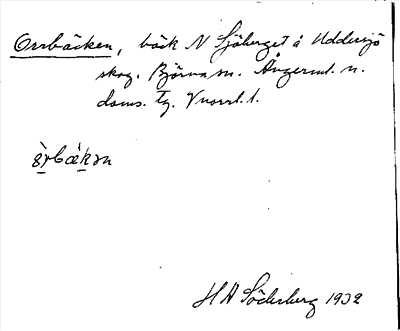 Orrbäcken, bäck N Sjöberget å Uddersjö
skog. Björna sn. Ångerml. n.
doms. tg. Vnorrl. l.
òrbæ̀kən
H A Söderberg 1932